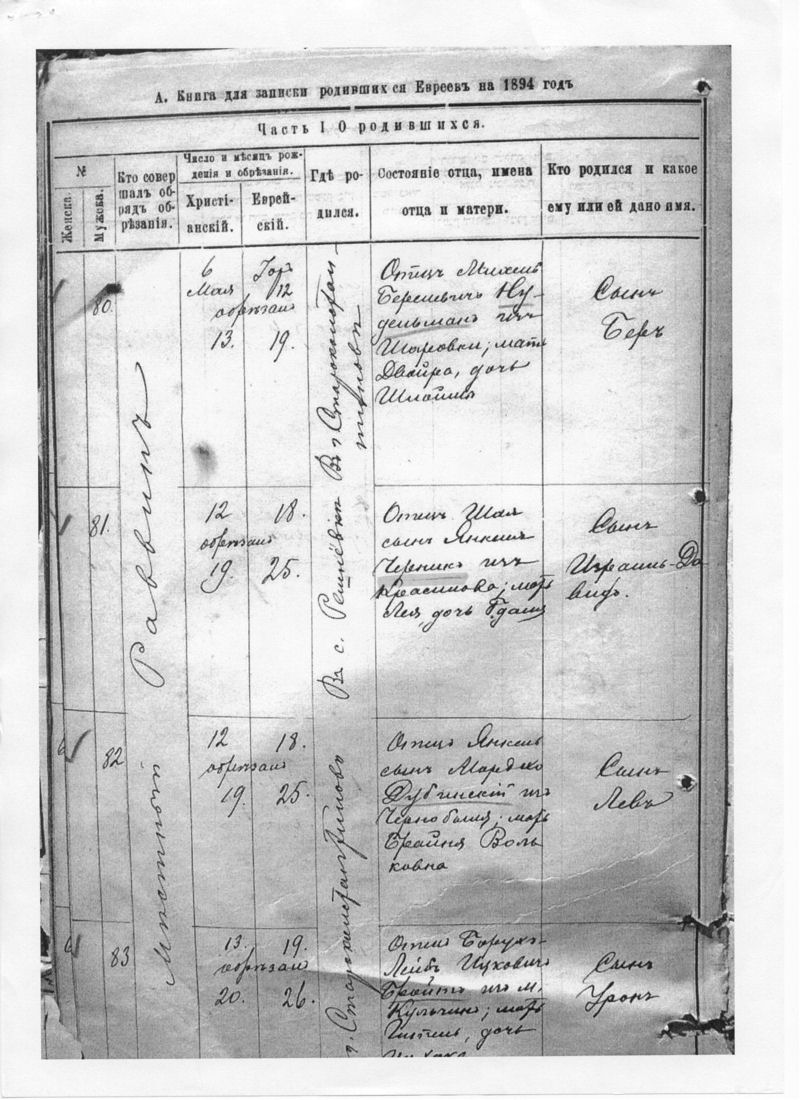 А. Книга для записки родившихся Евреевъ на 1894 годъ
Часть I О родившихся.
№
Женска.
Мужска.
Кто совер
шалъ об
рядъ об-
рѣзанія.
Число и мѣсяцъ рож-
денія и обрѣзанія.
Христі-
анскій.
Еврей-
скій.
Гдѣ ро-
дился.
Состояніе отца, имена
отца и матери.
Кто родился и какое
ему или ей дано имя.
Мѣстный Раввинъ
80.
6
Мая
12
обрѣзанъ
13. 19.
Въ г. Староконстан-
тиновѣ
Отецъ Михель
Берелевичъ Ну-
дельманъ изъ
Шаровки; мать
Двойра, дочь
Шлоймы
Сынъ
Беръ
81.
12 18.
обрѣзанъ
19. 25.
Въ с. Решнёвкѣ
Отецъ Шая
сынъ Янкеля
Черникъ изъ
Красилова; мать
Лея, дочь
Сынъ
Израиль-Да
видъ.
82
12 18.
обрѣзанъ
19. 25.
г. Староконстантиновъ
Отецъ Янкель
сынъ Мордко
Дубинскій изъ
Чернобыля; мать
Брайня Воль
ковна
Сынъ
Левъ
83
13. 19.
обрѣзанъ
20. 26.
Отецъ Борухъ-
Лейбъ Ицковичъ
изъ м.
Кульчинъ; мать
дочь
Сынъ